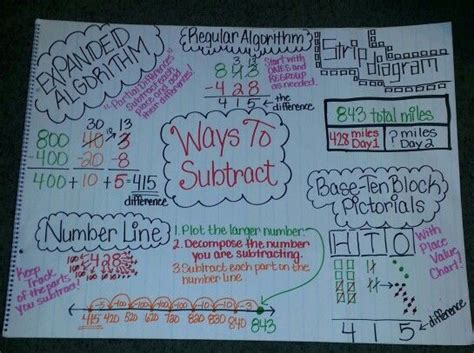 EXPANDED
ALGORITHM
"Partial Differences"
Subtract each
place and add
their differences!
30 13
800 40 3
400 -20 -8
400 + 10 + 5 = 415
difference
Regular Algorithm
3 13
843
-428
415
the
difference
Start with
ONES and
REGROUP
as needed.
Strip
diagram
843 total miles
428 miles
Day 1
? miles
Day 2
Ways To
Subtract
Number Line
428
Keep
Track
of the parts
you subtract!
1. Plot the larger number.
2. Decompose the number
you are subtracting.
3 Subtract each part on the
number line
-5 -100 -100 -100 -100 -10 -10 -3
415 420 520 620 720 820 830 840 843
Base-Ten Block
Pictorials
With
Place
Value
Chart!
H T O
4 1 5